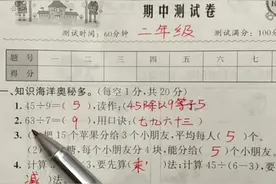 期中测试卷
测试时间：60分钟 二年级 测试满分：100分
题号 一 二 三
得分
一、知识海洋奥秘多。(每空1分，共20分)
1. 45÷9=( 5 )，读作：( 45除以9等于5
2. 63÷7=( 9 )，用口诀：( 七九六十三 )
把15个苹果分给3个小朋友，平均每人( 5 )个。
糖，每个小朋友分4块，能分给( 5 )个小朋友。
4. 计算 要先算( 乘 )法；计算45÷(6-3)，要
减